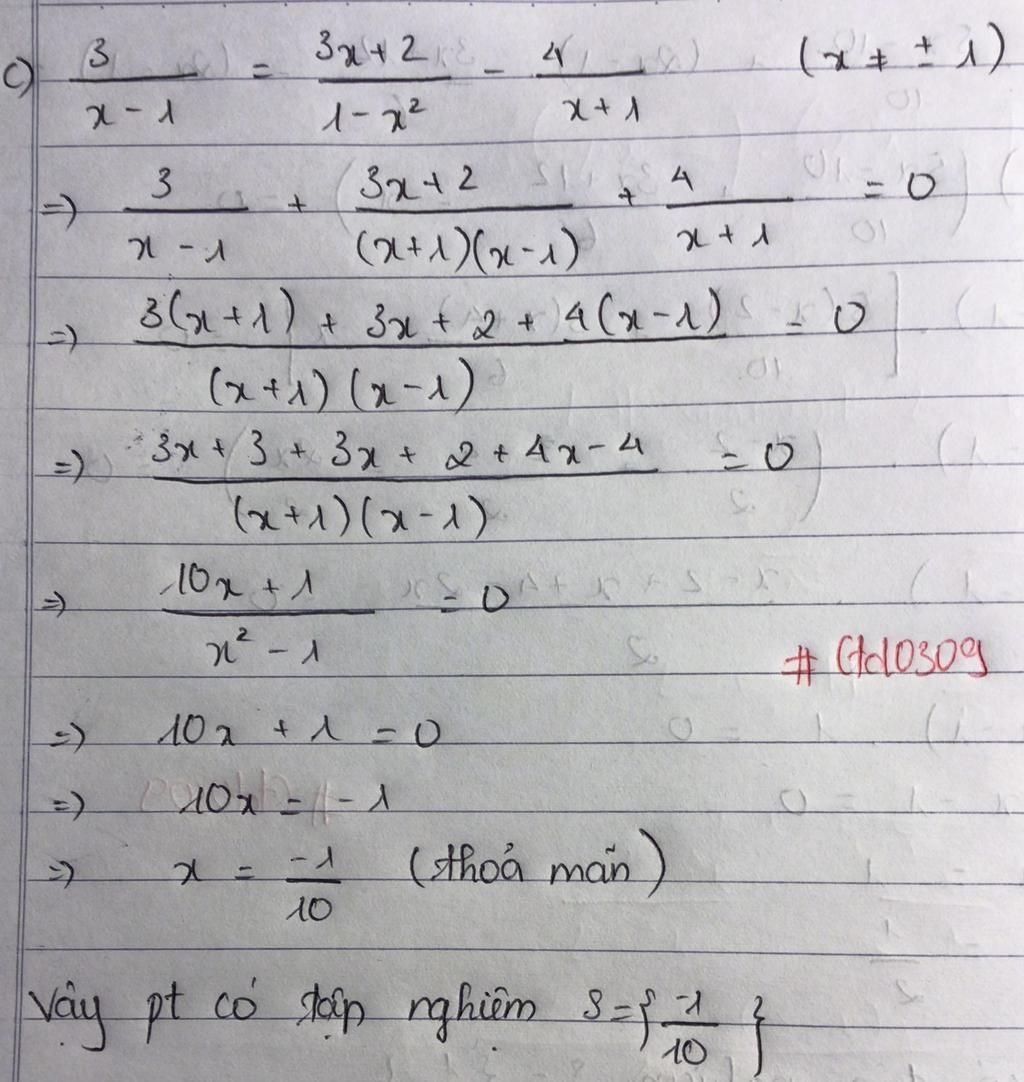 c) 3/(x - 1) = (3x + 2)/(1 - x²) - 4/(x + 1) (x ≠ ± 1)
=) 3/(x - 1) + (3x + 2)/((x+1)(x-1)) + 4/(x + 1) = 0
=) (3(x+1) + 3x + 2 + 4(x-1))/((x+1)(x-1)) = 0
=) (3x + 3 + 3x + 2 + 4x - 4)/((x+1)(x-1)) = 0
=) (10x + 1)/(x² - 1) = 0
=) 10x + 1 = 0
=) 10x = -1
=) x = -1/10 (thoả mãn)
Vậy pt có tập nghiệm S = { -1/10 }